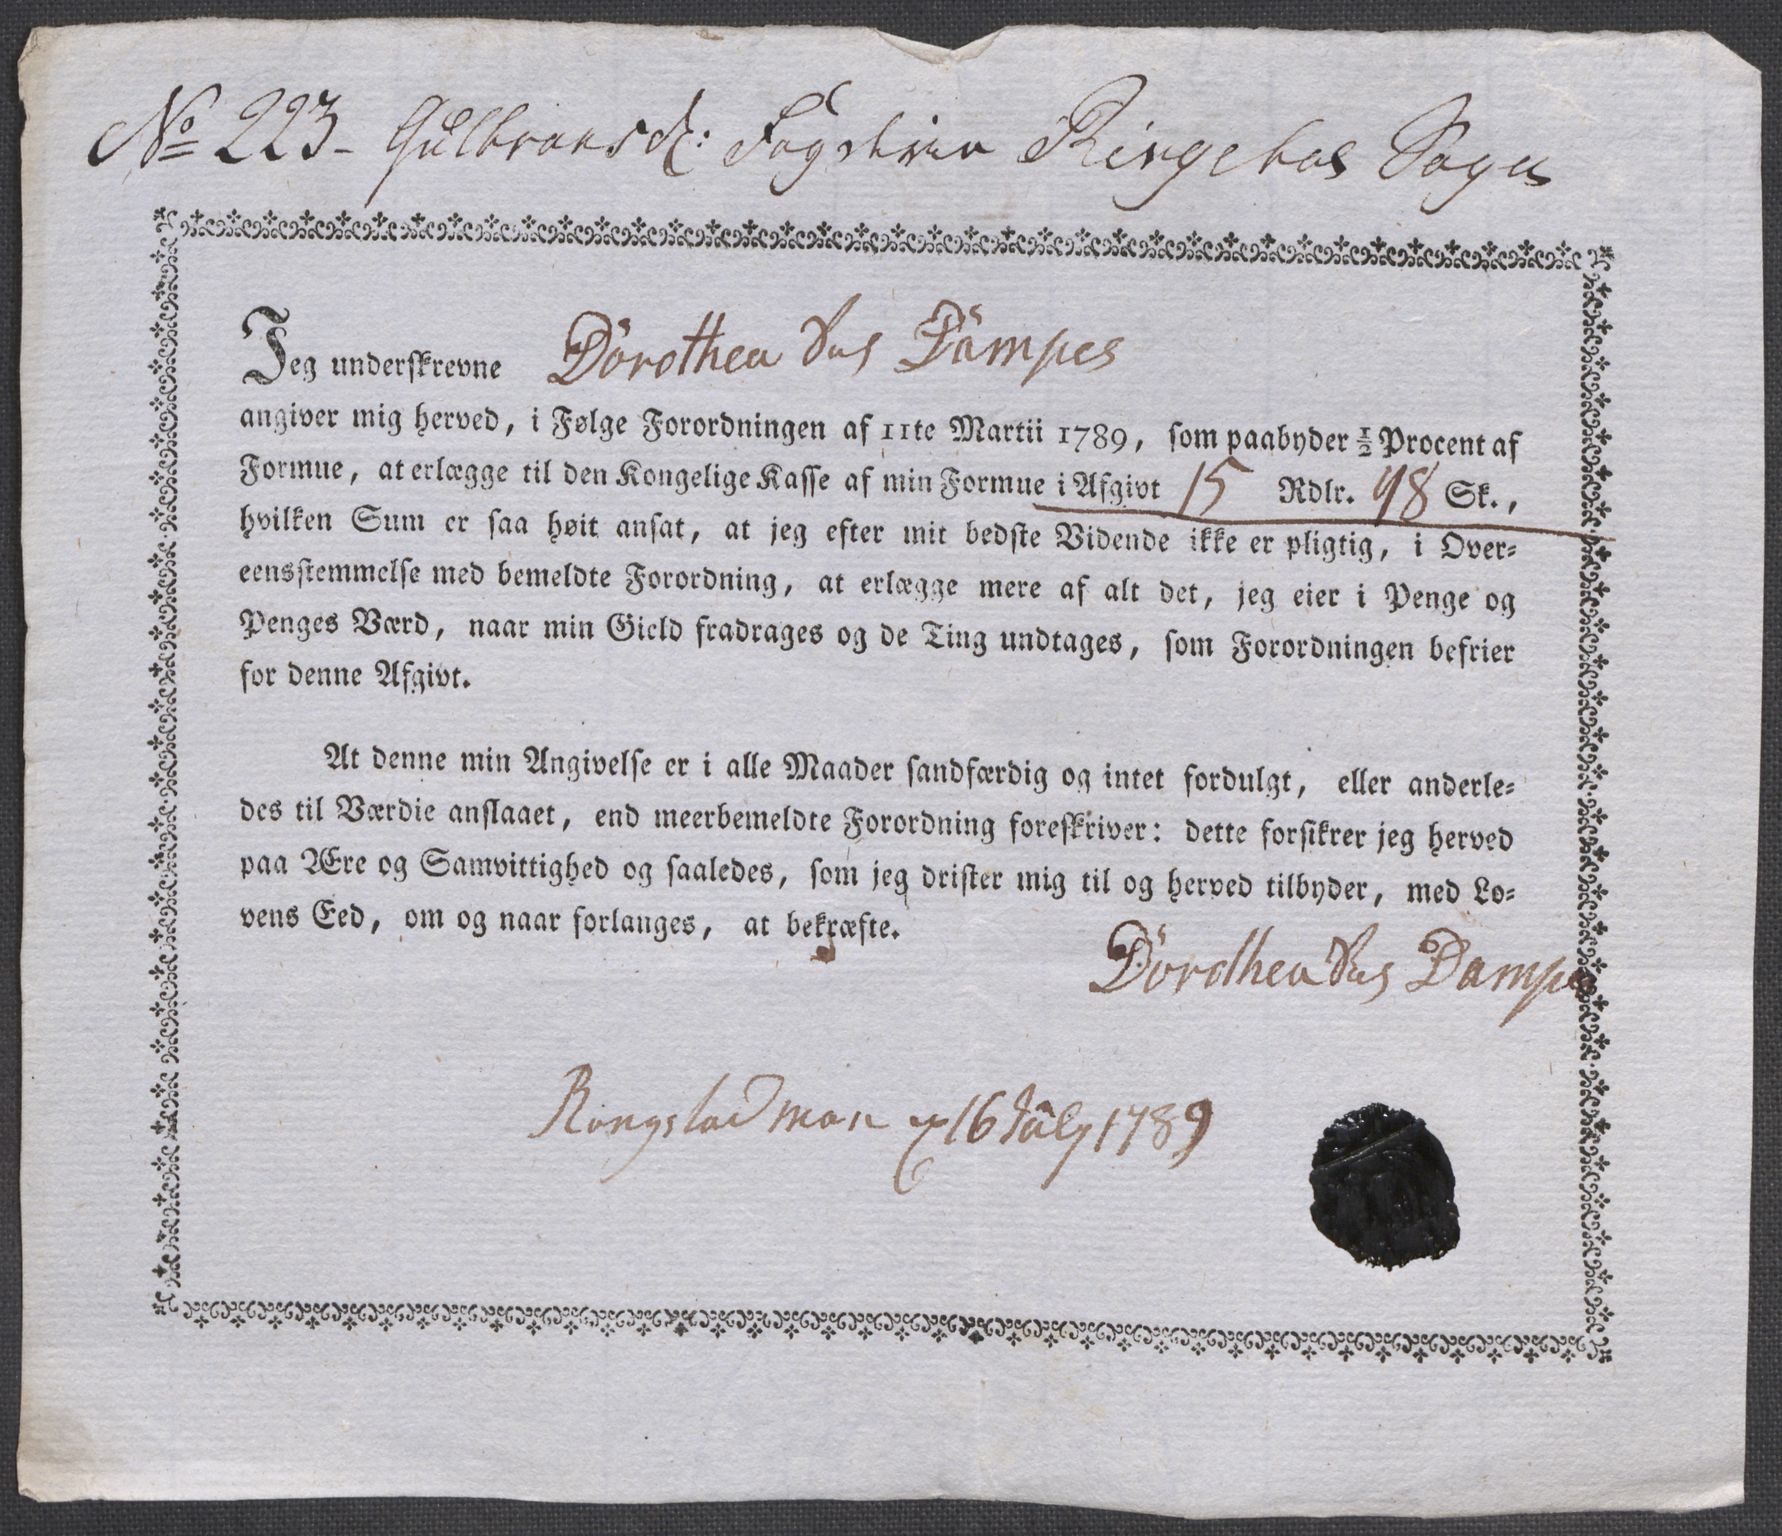 No 223 - Gulbransd: Fogderie Ringeboe Sogn
Jeg underskrevne Dorothea Sal Dampes
angiver mig herved, i Følge Forordningen af 11te Martii 1789, som paabyder ½ Procent af
Formue, at erlægge til den Kongelige Kasse af min Formue i Afgivt 15 Rdlr. 48 Sk.,
hvilken Sum er saa høit ansat, at jeg efter mit bedste Vidende ikke er pligtig, i Over=
eensstemmelse med bemeldte Forordning, at erlægge mere af alt det, jeg eier i Penge og
Penges Værd, naar min Gield fradrages og de Ting undtages, som Forordningen befrier
for denne Afgivt.
At denne min Angivelse er i alle Maader sandfærdig og intet fordulgt, eller anderle=
des til Værdie anslaaet, end meerbemeldte Forordning foreskriver: dette forsikrer jeg herved
paa Ære og Samvittighed og saaledes, som jeg drister mig til og herved tilbyder, med Lo=
vens Eed, om og naar forlanges, at bekræfte.
Dorothea Sal Dampes
16 July 1789